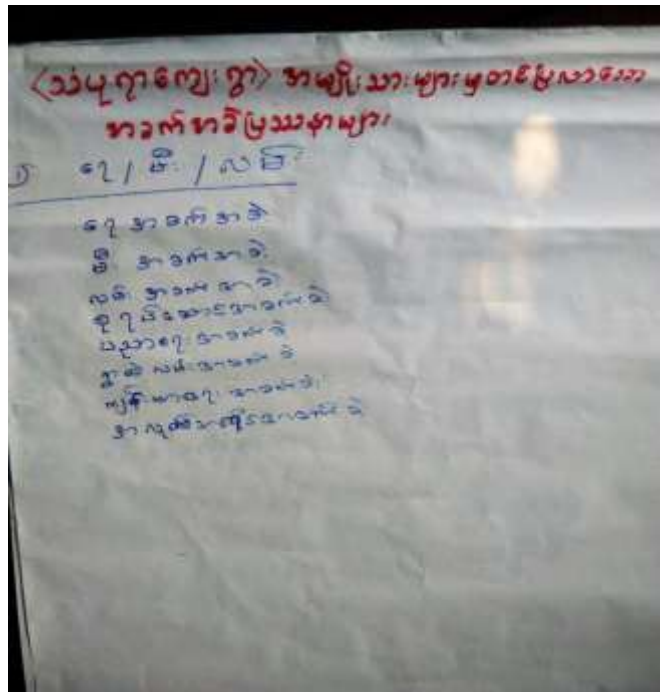 (သံပုရာကျေးရွာ) အမျိုးသားများမှတင်ပြလာသော
အခက်အခဲပြဿနာများ
၁ ရေ / မီး / လမ်း
ရေ အခက်အခဲ
မီး အခက်အခဲ
လမ်း အခက်အခဲ
စုရပ်အဆောင်အခက်အခဲ
ပညာရေး အခက်အခဲ
ရွာထဲလမ်းအခက်အခဲ
ကျန်းမာရေး အခက်အခဲ
အလုပ်အကိုင်အခက်အခဲ